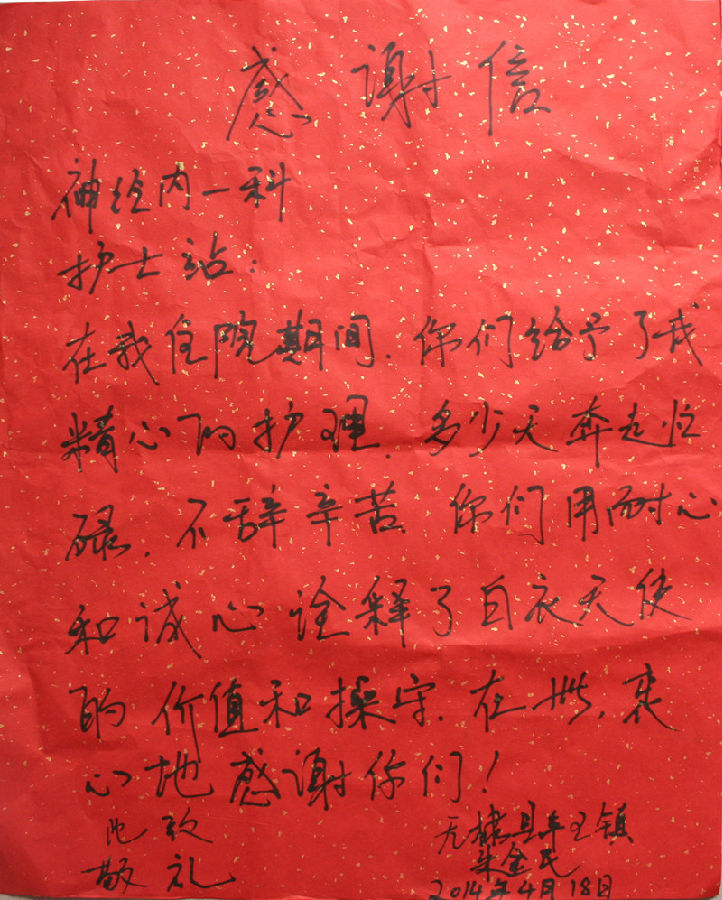 感谢信
神经内一科
护士站:
在我住院期间.你们给予了我
精心的护理.多少天奔走忙
碌.不辞辛苦 你们用耐心
和诚心 诠释了白衣天使
的价值和操守.在此,衷
心地感谢你们!
此致
敬礼
无棣县车王镇
朱金民
2014年4月18日